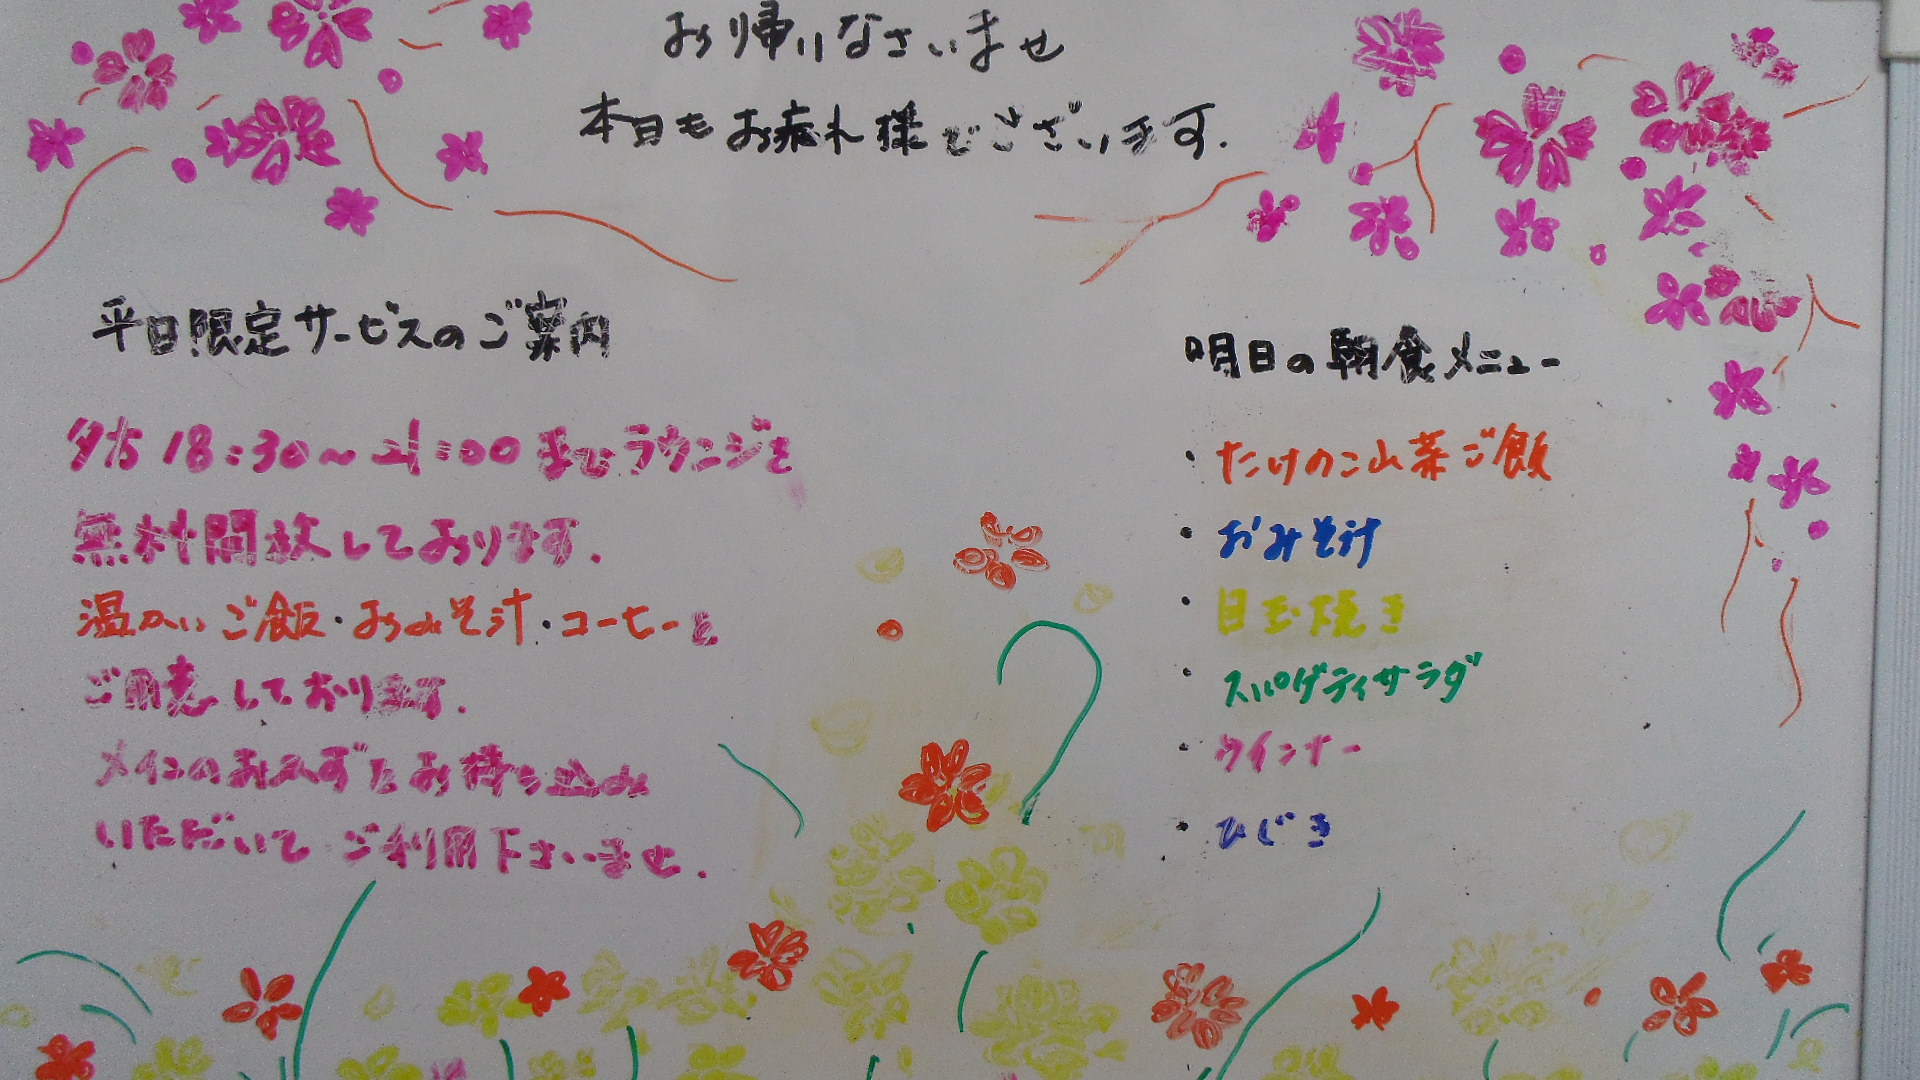 お帰りなさいませ
本日もお疲れ様でございます.
平日限定サービスのご案内
夕方 18:30～21:00までラウンジを
無料開放しております.
温かいご飯・おみそ汁・コーヒーを
ご用意しております.
メインのおかずをお持ち込み
いただいて ご利用下さいませ.
明日の朝食メニュー
・たけのこ山菜ご飯
・おみそ汁
・目玉焼き
・スパゲティサラダ
・ウインナー
・ひじき